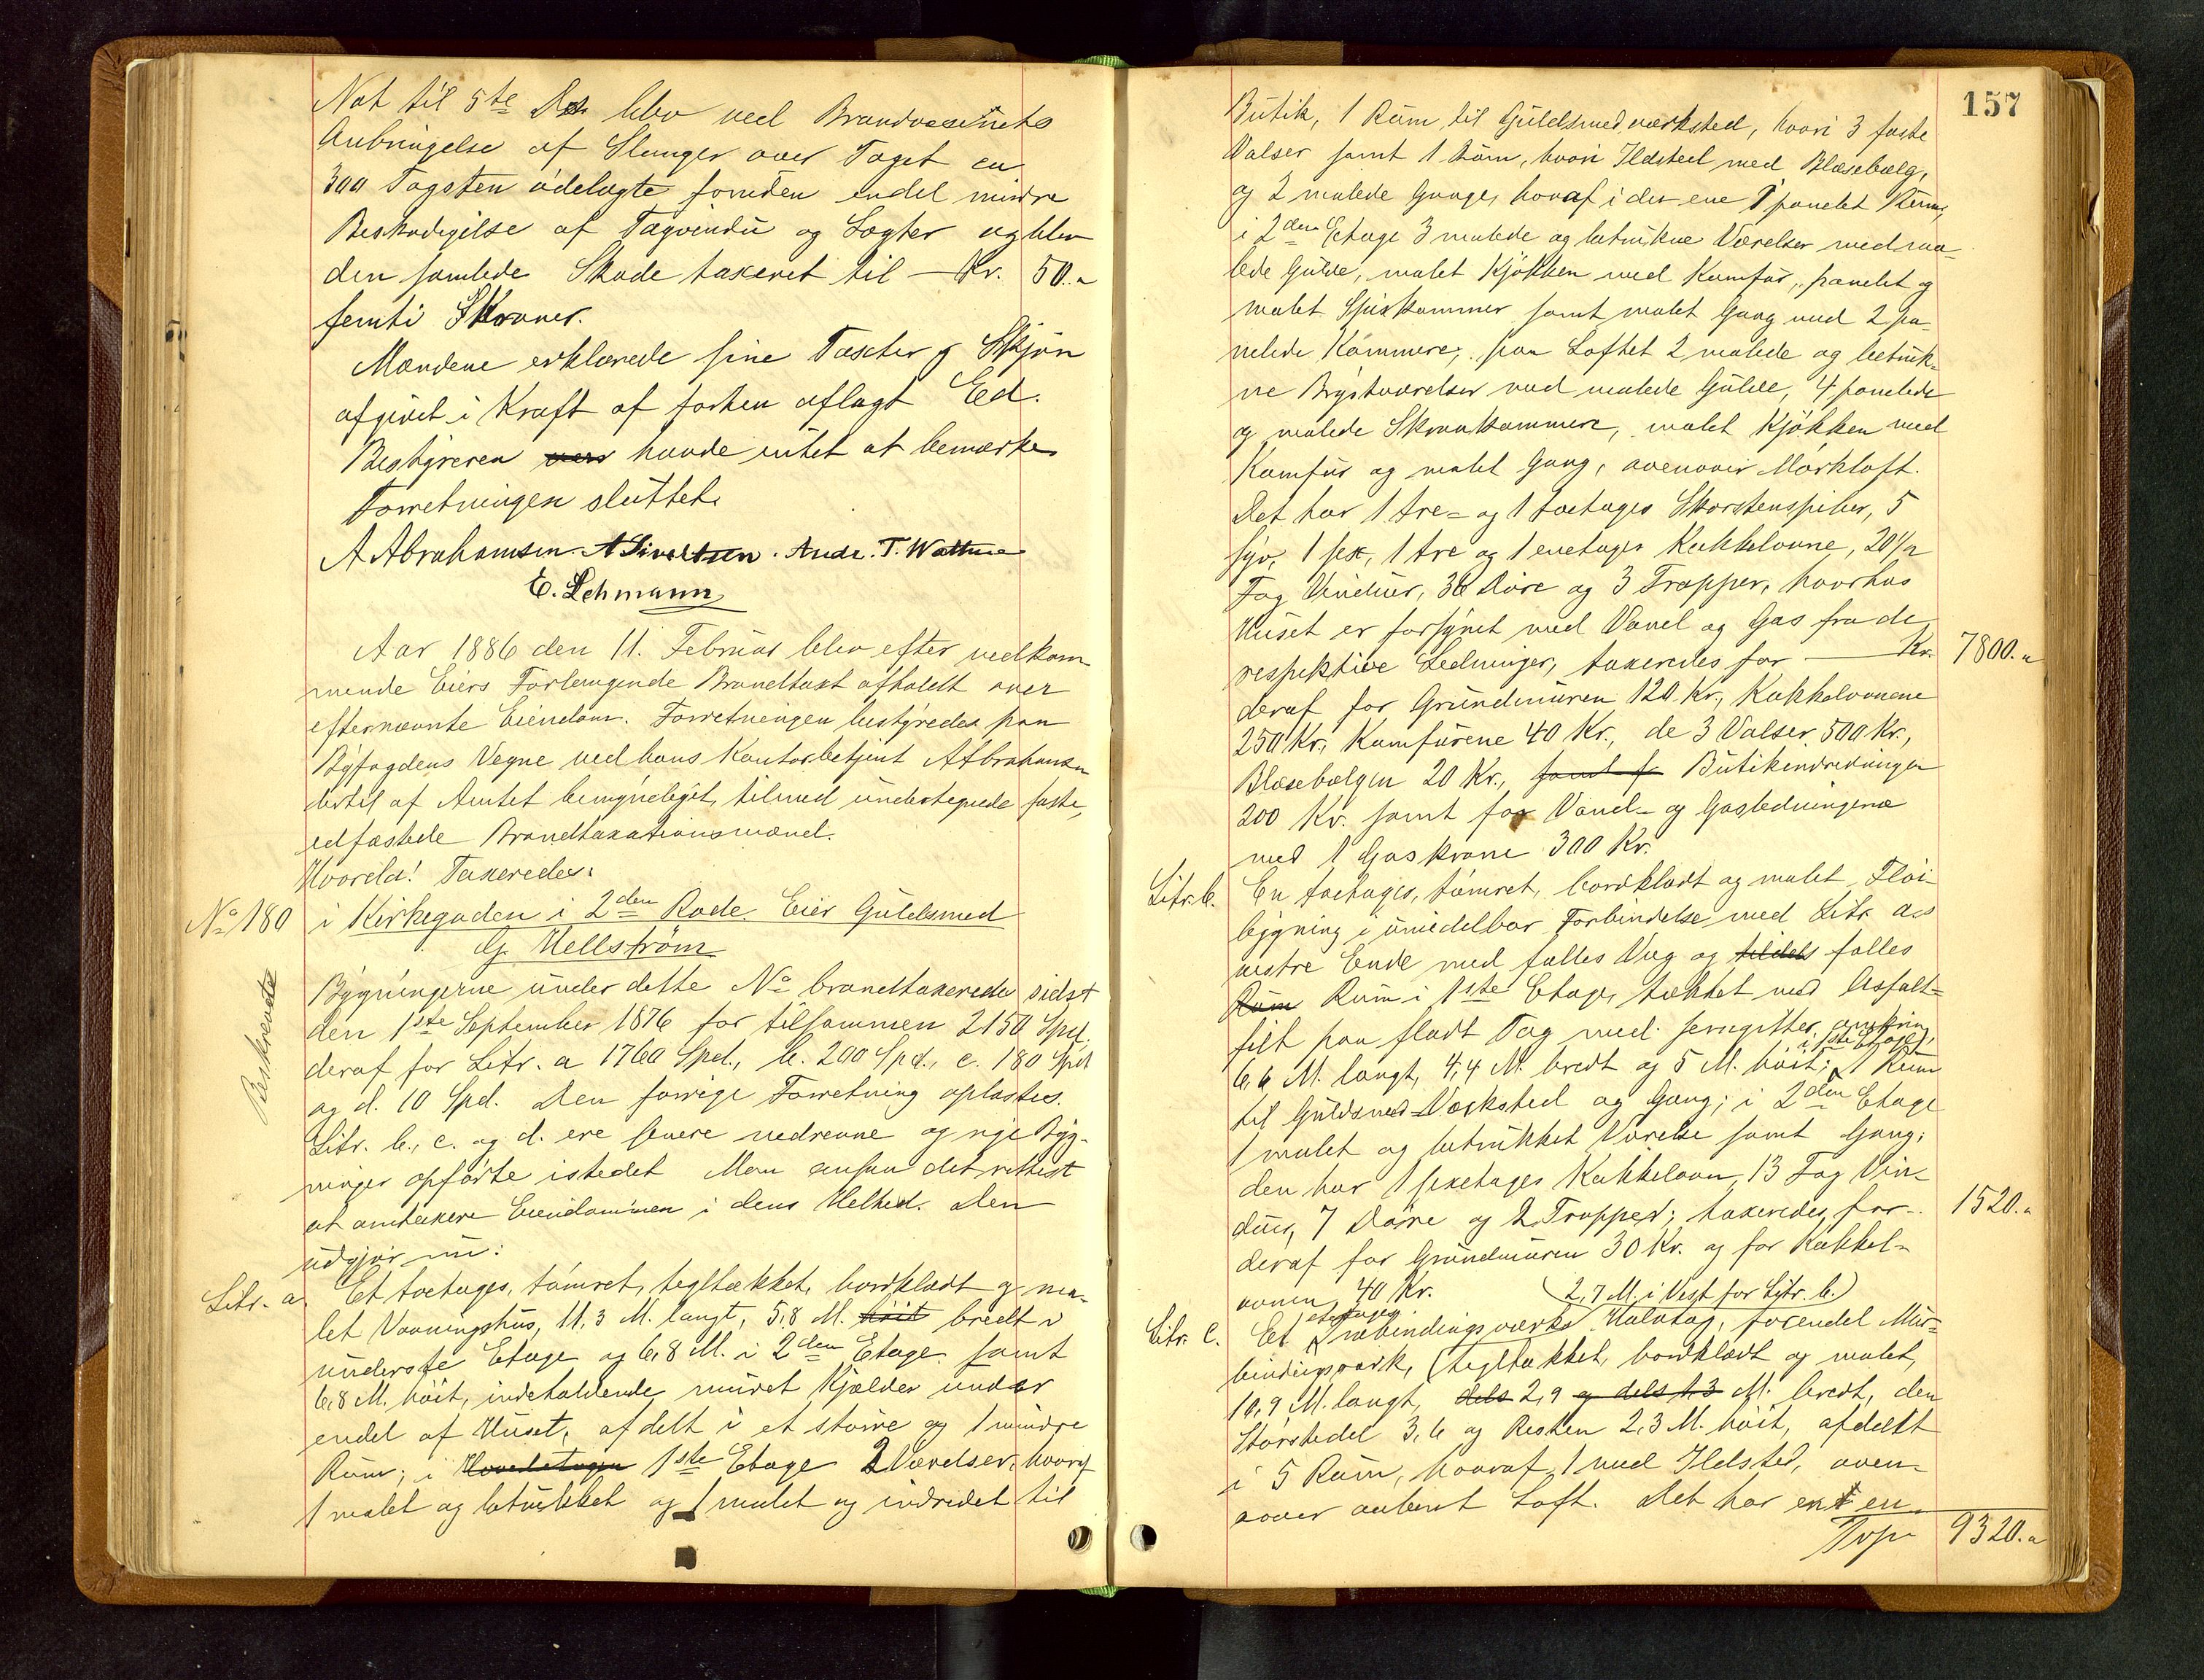 Nat til 5te Ds blev ved Brandvæsenets
Anbringelse af Slanger over Taget ca
300 Tagsten ödelagte foruden endel mindre
Beskadigelse af Tagvindu og Lægter og blev
den samlede Skade taxeret til — Kr. 50..
femti Kroner.
Mændene erklærede sine Taxter og Skjön
afgivet i Kraft af forhen aflagt Ed.
Bestyreren havde intet at bemærke
Forretningen sluttet.
A Abrahamsen. A Sivertsen. Andr. T. Wattne
E. Lehmann
Aar 1886 den 11. Februar blev efter vedkom-
mende Eiers Forlangende Brandtaxt afholdt over
efternævnte Eiendom. Forretningen bestyredes paa
Byfogdens Vegne ved hans Kontorbetjent Abrahamsen
dertil af Amtet bemyndiget, tilmed undertegnede faste,
edfæstede Brandtaxationsmænd.
Hvorda! Taxeredes:
No 180 i Kirkegaden i 2den Rode. Eier Guldsmed
G. Hellström
Beskrevet
Bygningerne under dette No brandtaxeredes sidst
den 1ste September 1876 for tilsammen 2150 Spd.
deraf for Litr. a 1760 Spd., b. 200 Spd., c. 180 Spd
og d. 10 Spd. Den forrige Forretning oplæstes.
Litr. b., c. og d. ere senere nedrevne og nye Byg-
ninger opförte istedet. Man ansaa det rettest
at omtaxere Eiendommen i dens Helhed. Den
udgjör nu:
Litr. a. Et toetages, tömret, tegltækket, bordklædt og ma-
let Vaaningshus, 11,3 M. langt, 5,8 M. höit bredt i
underste Etage og 6,8 M. i 2den Etage samt
6,8 M. höit, indeholdende muret Kjælder under
endel af Huset, afdelt i et större og 1 mindre
Rum; i Hovedetagen 1ste Etage 2 Værelser, hvoraf
1 malet og betrukket og 1 malet og indredet til
157
Butik, 1 Rum til Guldsmedværksted, hvori 3 faste
Valser samt 1 Rum, hvori Ildsted med Blæsebælg,
og 2 malede Gange, hvoraf i den ene 1 panelet Rum,
i 2den Etage 3 malede og betrukne Værelser med ma-
lede Gulve, malet Kjökken med Komfur, panelet og
malet Spiskammer samt malet Gang med 2 pa-
nelede Kammere; paa Loftet 2 malede og betruk-
ne Brystværelser med malede Gulve, 4 panelede
og malede Skraakammere, malet Kjökken med
Komfur og malet Gang, ovenover Mörkloft.
Det har 1 tre- og 1 toetages Skorstenspiber, 5
syv, 1 sex, 1 tre og 1 enetages Kakkelovne, 20 1/2
Fag Vinduer, 36 Döre og 3 Trapper, hvorhos
Huset er forsynet med Vand og Gas fra de
respektive Ledninger; taxeredes for — Kr. 7800..
deraf for Grundmuren 120 Kr., Kakkelovnene
250 Kr., Komfurene 40 Kr., de 3 Valser 500 Kr.,
Blæsebælgen 20 Kr., samt f Butikindredningen
200 Kr. samt for Vand- og Gasledningerne
med 1 Gaskrone 300 Kr.
Litr. b. En toetages, tömret, bordklædt og malet Flöi-
bygning i umiddelbar Forbindelse med Litr. a.s
vestre Ende med fælles Væg og tildels fælles
Rum Rum i 1ste Etage, tækket med Asfalt-
filt paa fladt Tag med Jerngitter omkring,
6,6 M. langt, 4,4 M. bredt og 5 M. höit; i 1ste Etage 1 Rum
til Guldsmed-Værksted og Gang; i 2den Etage
1 malet og betrukket Værelse samt Gang;
den har 1 sexetages Kakkelovn, 13 Fag Vin-
duer, 7 Döre og 2 Trapper; taxeredes for .. 1520..
deraf for Grundmuren 30 Kr. og for Kakkel-
ovnen 40 Kr. (2,7 M. i Vest for Litr. b.)
Litr. c. Et etetages Træbindingsværks Halvtag, forendel Mur-
bindingsværk, tegltækket, bordklædt og malet,
10,9 M. langt, dels 2,9 og dels 1,3 M. bredt, den
Störstedel 3,6 og Resten 2,3 M. höit, afdelt
i 5 Rum, hvoraf 1 med Ildsted, oven-
over aabent Loft. Det har en
Trsp. 9320..